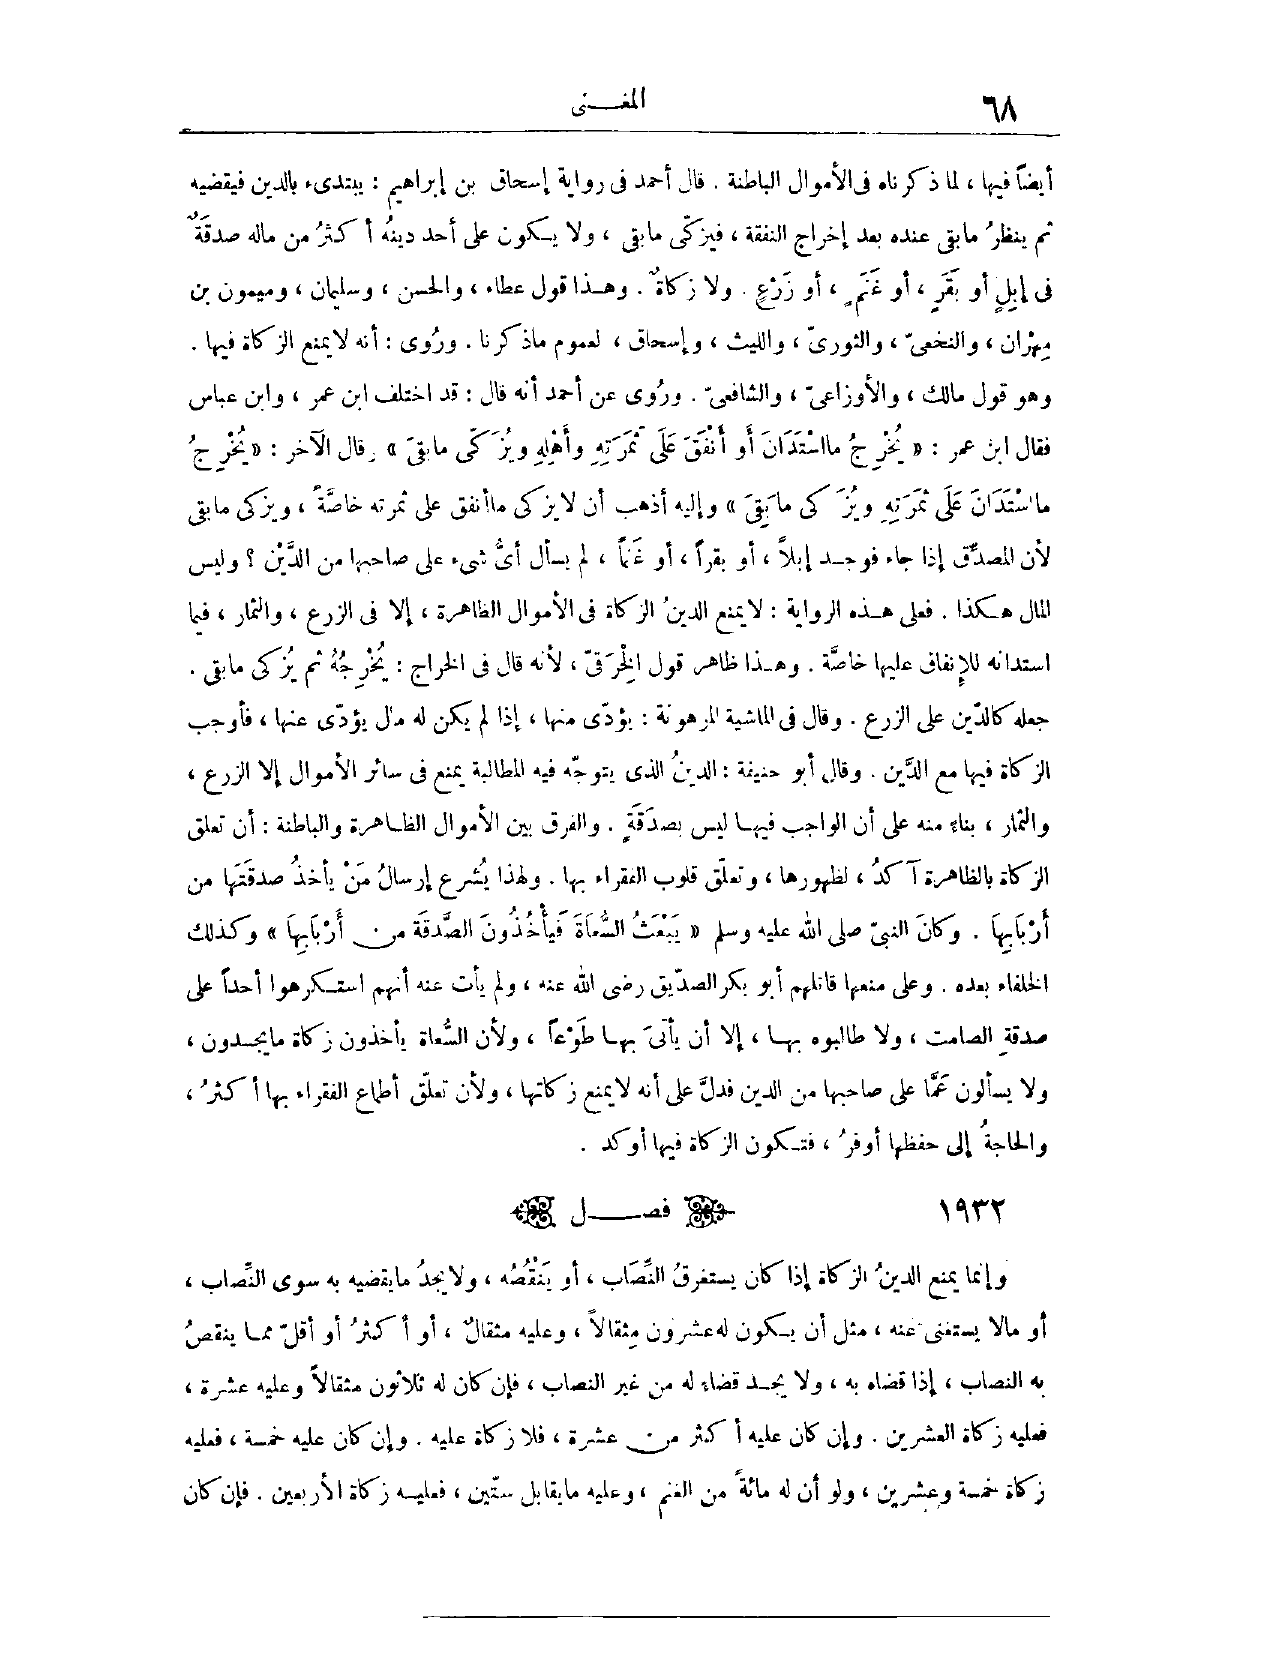 ٦٨
المغـــنى
أيضاً فيها ، لما ذكرناه فى الأموال الباطنة . قال أحمد فى رواية إسحاق بن إبراهيم : يبتدىء بالدين فيقضيه
ثم ينظرُ مابقى عنده بعد إخراج النفقة ، فيزكّى مابقى ، ولا يكون على أحد دينهُ أكثرُ من ماله صدقَةٌ
فى إبِلٍ أو بَقَرٍ ، أو غَنَمٍ ، أو زَرْعٍ . ولا زكاةٌ . وهذا قول عطاء ، والحسن ، وسليمان ، وميمون بن
مِهْران ، والنخعىّ ، والثورىّ ، والليث ، وإسحاق ، لعموم ماذكرنا . ورُوى : أنه لايمنع الزكاة فيها .
وهو قول مالك ، والأوزاعىّ ، والشافعىّ . ورُوى عن أحمد أنه قال : قد اختلف ابن عمر ، وابن عباس
فقال ابن عمر : « يُخْرِجُ مااسْتَدَانَ أَو أَنْفَقَ عَلَى ثَمَرَتِهِ وأَهْلِهِ ويُزَكّى مابقىَ » . قال الآخر : « يُخْرِجُ
مااسْتَدَانَ عَلَى ثَمَرَتِهِ ويُزَكى مابَقِىَ » وإليه أذهب أن لايزكى ماأنفق على ثمرته خاصَّةً ، ويزكى مابقى
لأن المصدِّق إذا جاء فوجد إبلاً ، أو بقراً ، أو غَنَماً ، لم يسأل أىُّ شىء على صاحبها من الدَّيْن ؟ وليس
المال هكذا . فعلى هذه الرواية : لايمنع الدينُ الزكاة فى الأموال الظاهرة ، إلا فى الزرع ، والثمار ، فيما
استدانه للإنفاق عليها خاصَّة . وهذا ظاهر قول الخِرَقىّ ، لأنه قال فى الخراج : يُخْرِجُهُ ثم يُزكى مابقى .
جعله كالدّين على الزرع . وقال فى الماشية المرهونة : يؤدّى منها ، إذا لم يكن له مال يؤدّى عنها ، فأوجب
الزكاة فيها مع الدَّين . وقال أبو حنيفة : الدينُ الذى يتوجّه فيه المطالبة يمنع فى سائر الأموال إلا الزرع ،
والثمار ، بناء منه على أن الواجب فيها ليس بصدَقَةٍ . والفرق بين الأموال الظاهرة والباطنة : أن تعلق
الزكاة بالظاهرة آكدُ ، لظهورها ، وتعلّق قلوب الفقراء بها . ولهذا يُشرع إرسالُ مَنْ يأخذُ صدقَتَها من
أَرْبَابِهَا . وكَانَ النبىّ صلى الله عليه وسلم « يَبْعَثُ السُّعَاةَ فَيَأْخُذُونَ الصَّدَقَةَ من أَرْبَابِهَا » وكذلك
الخلفاء بعده . وعلى منعها قاتلهم أبو بكر الصدّيق رضى الله عنه ، ولم يأت عنه أنهم استكرهوا أحداً على
صدقةِ الصامت ، ولا طالبوه بها ، إلا أن يأتىَ بها طَوْعاً ، ولأن السُّعاة يأخذون زكاة مايجدون ،
ولا يسألون عَمَّا على صاحبها من الدين فدلَّ على أنه لايمنع زكاتها ، ولأن تعلّق أطماع الفقراء بها أكثرُ ،
والحاجةُ إلى حفظها أوفرُ ، فتكون الزكاة فيها أوكد .
١٩٣٢
فصـــل
وإنما يمنع الدينُ الزكاة إذا كان يستغرقُ النِّصَاب ، أو يَنْقُصُه ، ولا يجدُ مايقضيه به سوى النِّصاب ،
أو مالا يستغنى عنه ، مثل أن يكون له عشرون مِثقالاً ، وعليه مثقالٌ ، أو أكثرُ أو أقلّ مما ينقصُ
به النصاب ، إذا قضاه به ، ولا يجد قضاء له من غير النصاب ، فإن كان له ثلاثون مثقالاً وعليه عشرة ،
فعليه زكاة العشرين . وإن كان عليه أكثر من عشرة ، فلا زكاة عليه . وإن كان عليه خمسة ، فعليه
زكاة خمسة وعشرين ، ولو أن له مائةً من الغنم ، وعليه مايقابل ستّين ، فعليه زكاة الأربعين . فإن كان